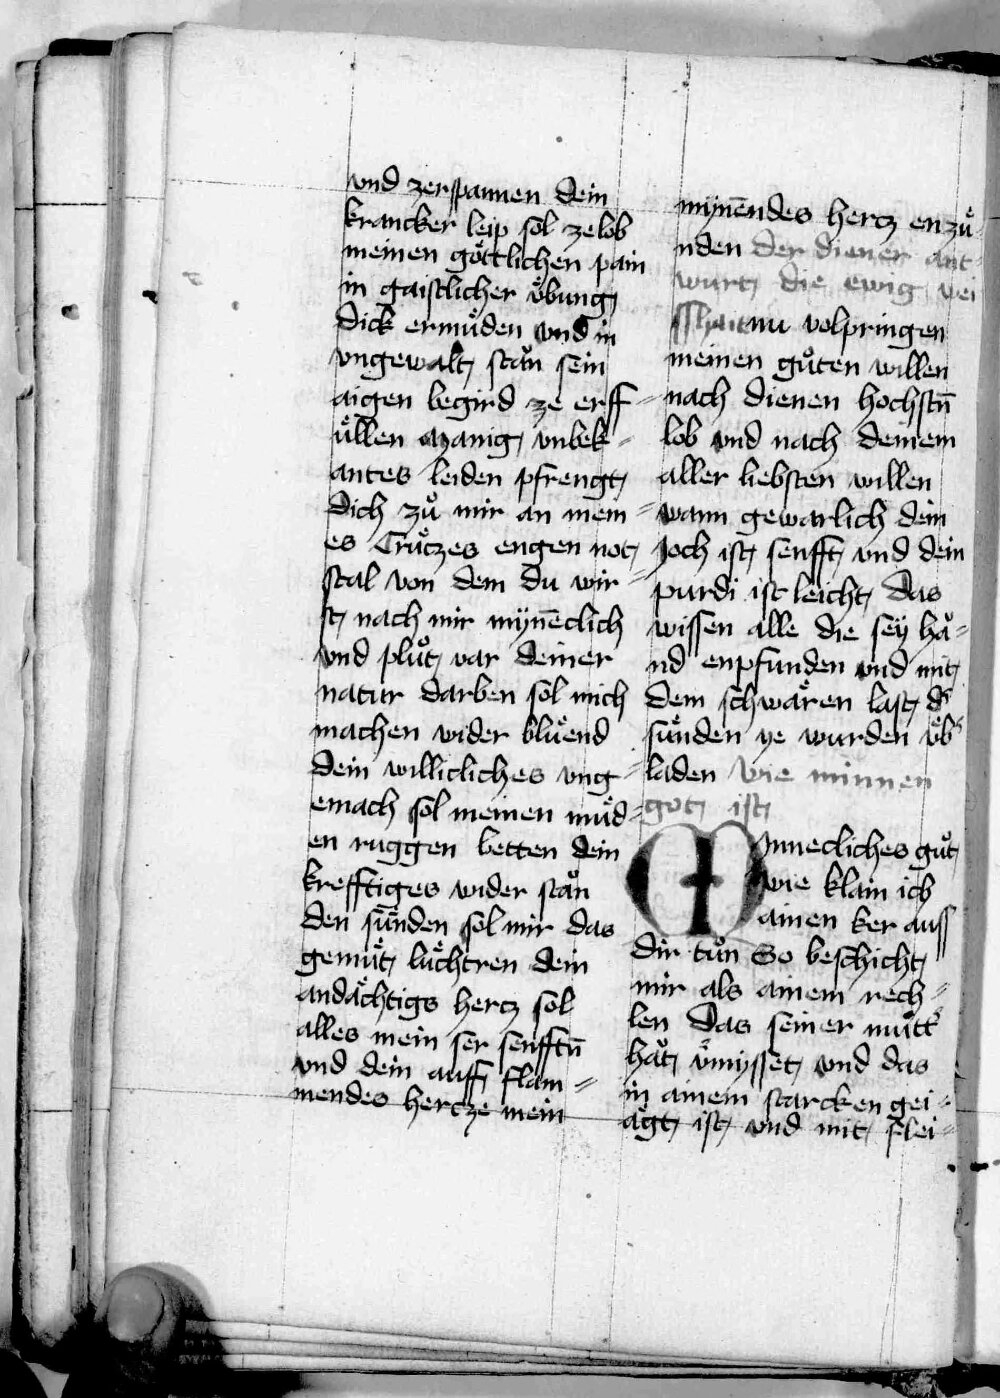 vnd zerspannen dein
krancker leip sol ze lob
meinen göttlichen pain
in gaistlicher übung
Dick ermüden vnd in
vngewalt stån sein
aigen begird ze erff=
üllen Manig vnbek=
antes leiden pfrengt
Dich zů mir an mein=
es Crützes engen not
stal von dem du wir=
st nach mir mynēclich
vnd plůt var deiner
natur darben sol mich
machen wider blüend
Dein willicliches vng=
emach sol meinen müd=
en ruggen betten dein
krefftiges wider stån
den sünden sol mir das
gemüt lüchtren dein
andächtigs hertz sol
alles mein ser senfftn̄
vnd dein auff flam=
mendes hertze mein
mynēndes hertz enzü=
nden der diener ant=
wurt die ewig wei
sshait nu volpringen
meinen gůten willen
nach dienen hochstn̄
lob vnd nach deinem
aller liebsten willen
wann gewarlich dein
Joch ist senfft vnd dein
purdi ist leicht Das
wissen alle die sey hå=
nd enpfunden vnd mit
dem schwären last d's
sünden ye wurden üb's
laden wie minnen
got ist
Minnecliches gůt
wie klain ich
ainen ker auss
dir tůn So beschicht
mir als ainem rech=
len Das seiner můtt'
håt v̈mysset vnd das
in ainem starcken gei=
ägt ist vnd mit flei=